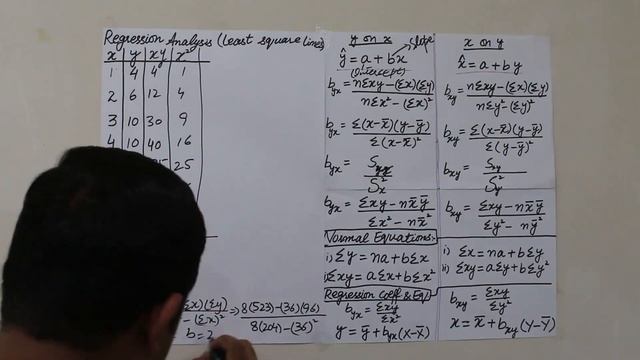 Regression Analysis (Least square lines)
x y xy x²
1 4 4 1
2 6 12 4
3 10 30 9
4 10 40 16
5 25
Σx)(Σy) ⇒ 8(523)-(36)(96)
-(Σx)² 8(204)-(36)²
b=2
y on x
slope
ŷ = a + bx
(Intercept)
b_yx = nΣxy-(Σx)(Σy)
nΣx²-(Σx)²
b_yx = Σ(x-x̄)(y-ȳ)
Σ(x-x̄)²
b_yx = S_xy
S_x²
b_yx = Σxy-nx̄ȳ
Σx²-nx̄²
Normal Equations:-
i) Σy = na+bΣx
ii) Σxy = aΣx+bΣx²
Regression Coeff & Eq:
b_yx = Σxy
Σx²
y = ȳ+b_yx(X-X̄)
x on y
x̂ = a + by
b_xy = nΣxy-(Σx)(Σy)
nΣy²-(Σy)²
b_xy = Σ(x-x̄)(y-ȳ)
Σ(y-ȳ)²
b_xy = S_xy
S_y²
b_xy = Σxy-nx̄ȳ
Σy²-nȳ²
i) Σx = na+bΣy
ii) Σxy = aΣy+bΣy²
b_xy = Σxy
Σy²
x = x̄+b_xy(Y-Ȳ)